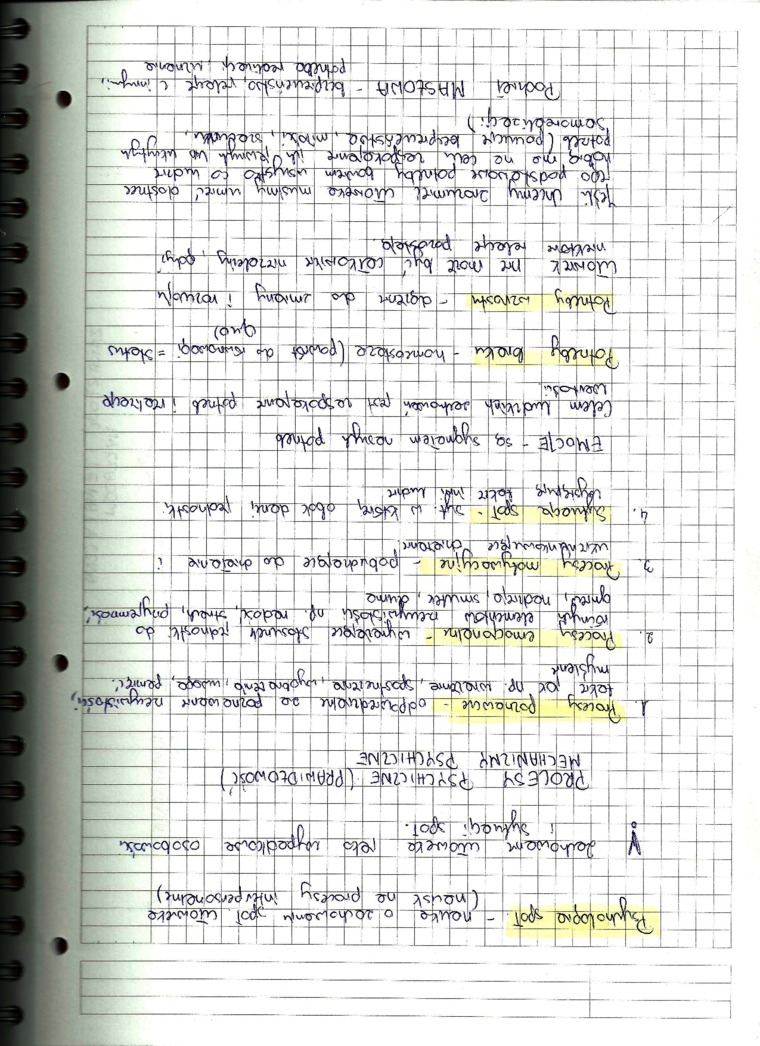 Psychologia społ. - nauka o zachowaniu społ człowieka
(nacisk na procesy interpersonalne)
Zachowanie człowieka jako wypadkowa osobowości
i sytuacji społ.
PROCESY PSYCHICZNE (PRAWIDŁOWOŚĆ)
MECHANIZMY PSYCHICZNE
1. Procesy poznawcze - odpowiedzialne za poznawanie rzeczywistości,
takie jak np. wrażenie, spostrzeżenie, wyobrażenie, uwaga, pamięć.
myślenie
2. Procesy emocjonalne - wyrażające stosunek jednostki do
różnych elementów rzeczywistości np. radość, strach, przyjemność,
gniew, nadzieja, smutek, duma
3. Procesy motywacyjne - pobudzające do działania i
ukierunkowujące działanie
4. Sytuacja społ - syt. w której obok danej jednostki
występują także inni ludzie
EMOCJE - są sygnałem naszych potrzeb
Celem ludzkich zachowań jest zaspokajanie potrzeb i realizacja
wartości
Potrzeby braku - homeostaza (powrót do równowagi = status
quo)
Potrzeby wzrostu - dążenie do zmiany i rozwoju
Człowiek nie może być całkowicie niezależny, gdyż
niektóre relacje pozostają.
Jeśli chcemy zrozumieć człowieka musimy umieć dostrzec
jego podstawowe potrzeby bowiem wszystko co ludzie
robią ma na celu zaspokajanie ich jawnych lub ukrytych
potrzeb (poczucie bezpieczeństwa, miłości, szacunku,
samorealizacji)
Podział MASLOWA - bezpieczeństwo, relacje z innymi,
potrzeba realizacji, uznanie